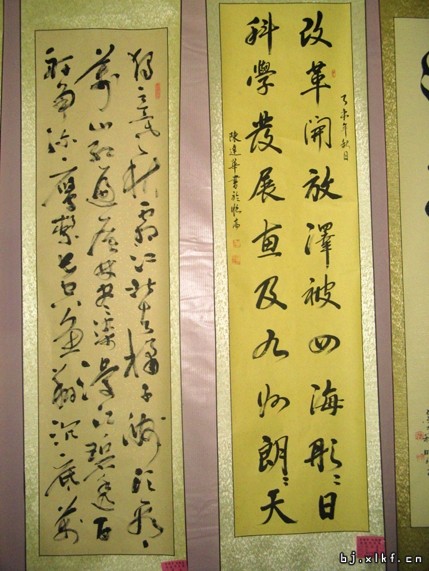 改革開放澤被四海彤〻日
科學發展惠及九州朗〻天
獨立寒秋湘江北去橘子洲頭看
萬山紅遍層林盡染漫江碧透百
舸爭流鷹擊長空魚翔淺底萬
bj.xlkf.cn